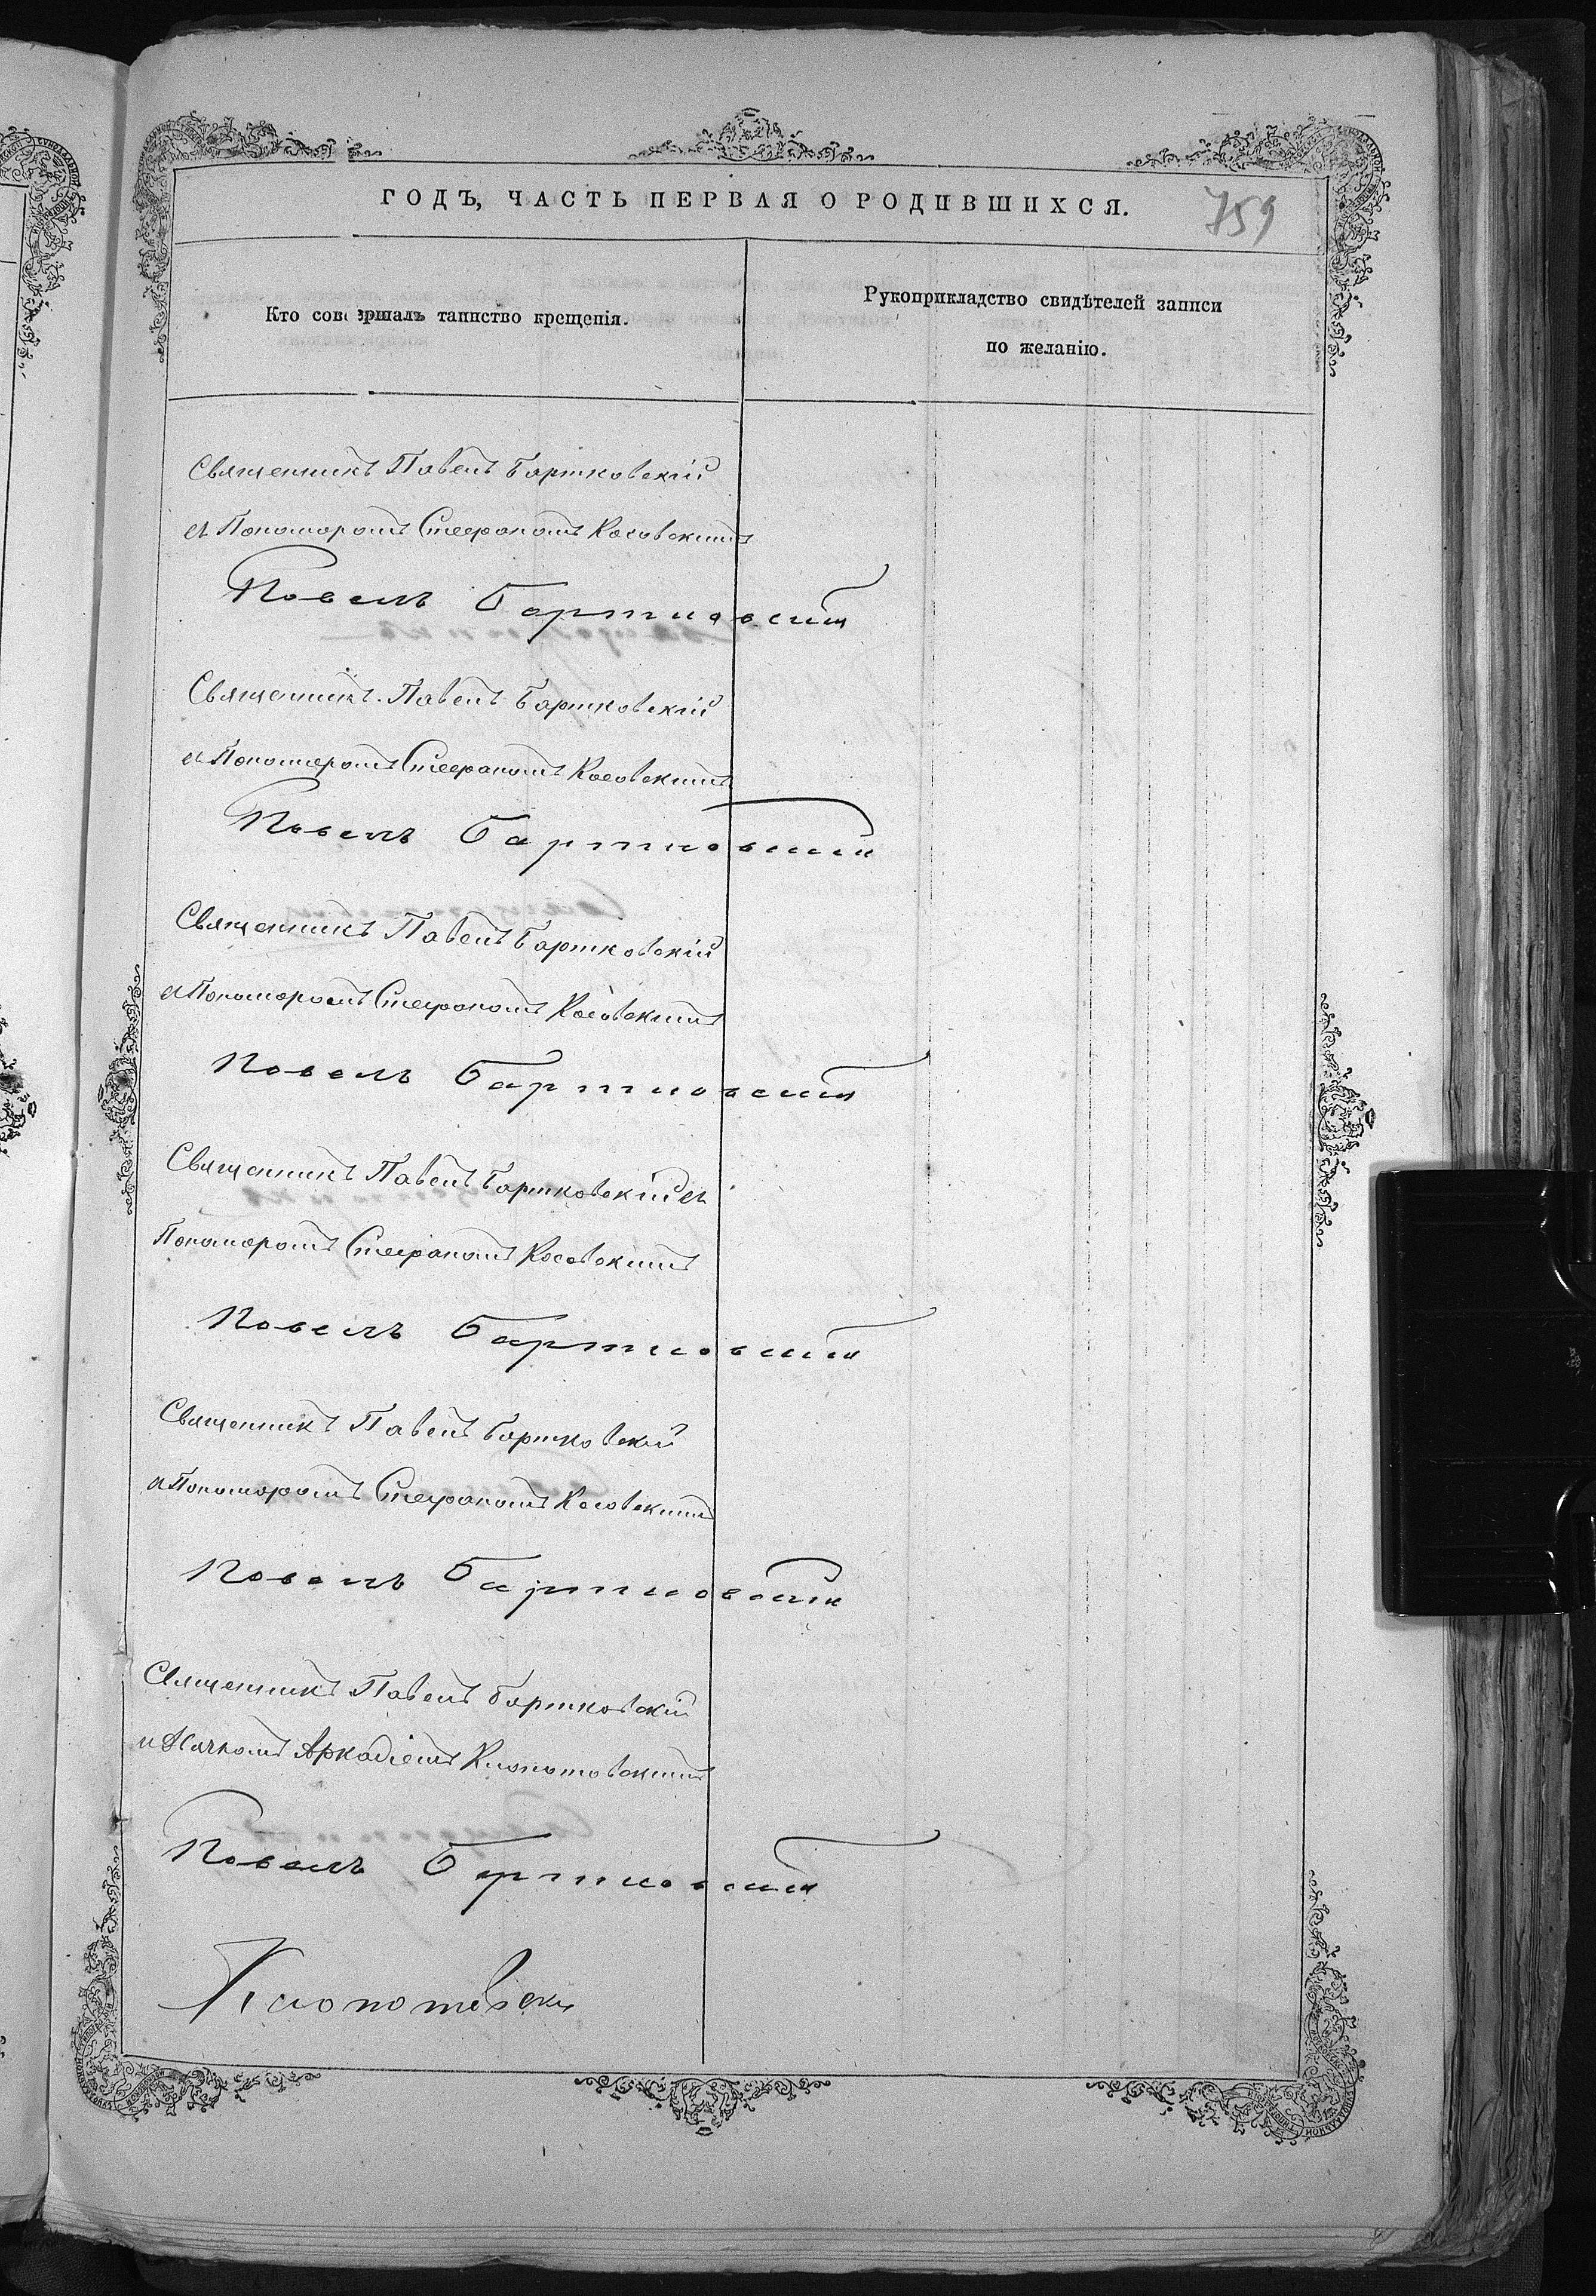 ГОДЪ, ЧАСТЬ ПЕРВАЯ О РОДИВШИХСЯ.
759
Кто совершалъ таинство крещенія.
Рукоприкладство свидѣтелей записи
по желанію.
Священникъ Павелъ Бартковскій
съ Пономаромъ Стефаномъ Косовскимъ
Павелъ Бартковскій
Священникъ Павелъ Бартковскій
съ Пономаромъ Стефаномъ Косовскимъ
Павелъ Бартковскій
Священникъ Павелъ Бартковскій
съ Пономаромъ Стефаномъ Косовскимъ
Павелъ Бартковскій
Священникъ Павелъ Бартковскій съ
Пономаромъ Стефаномъ Косовскимъ
Павелъ Бартковскій
Священникъ Павелъ Бартковскій
съ Пономаромъ Стефаномъ Косовскимъ
Павелъ Бартковскій
Священникъ Павелъ Бартковскій
Аркадіемъ Клопотовскимъ
Павелъ Бартковскій
Клопотовски